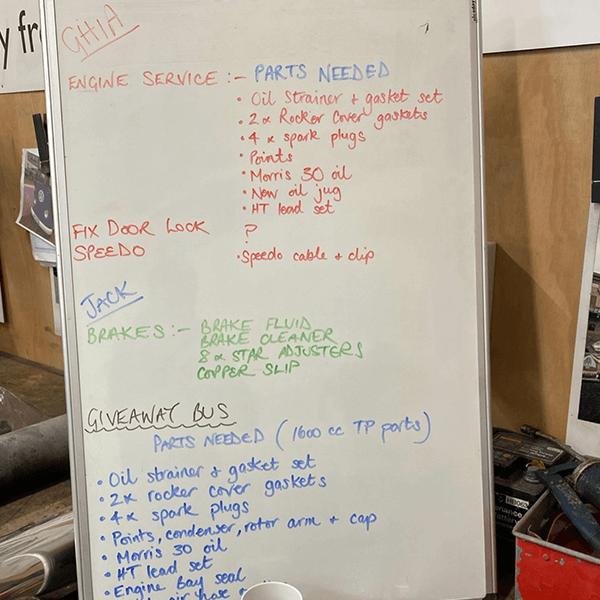 y fr
GHIA
ENGINE SERVICE :- PARTS NEEDED
• Oil Strainer + gasket set
• 2 x Rocker Cover gaskets
• 4 x spark plugs
• Points
• Morris 30 oil
• New oil jug
• HT lead set
FIX DOOR LOCK ?
SPEEDO • Speedo cable + clip
JACK
BRAKES :- BRAKE FLUID
BRAKE CLEANER
8 x STAR ADJUSTERS
COPPER SLIP
GIVEAWAY BUS
PARTS NEEDED (1600 cc TP parts)
• Oil strainer + gasket set
• 2x rocker cover gaskets
• 4x spark plugs
• Points, condenser, rotor arm + cap
• Morris 30 oil
• HT lead set
• Engine Bay seal
air hose